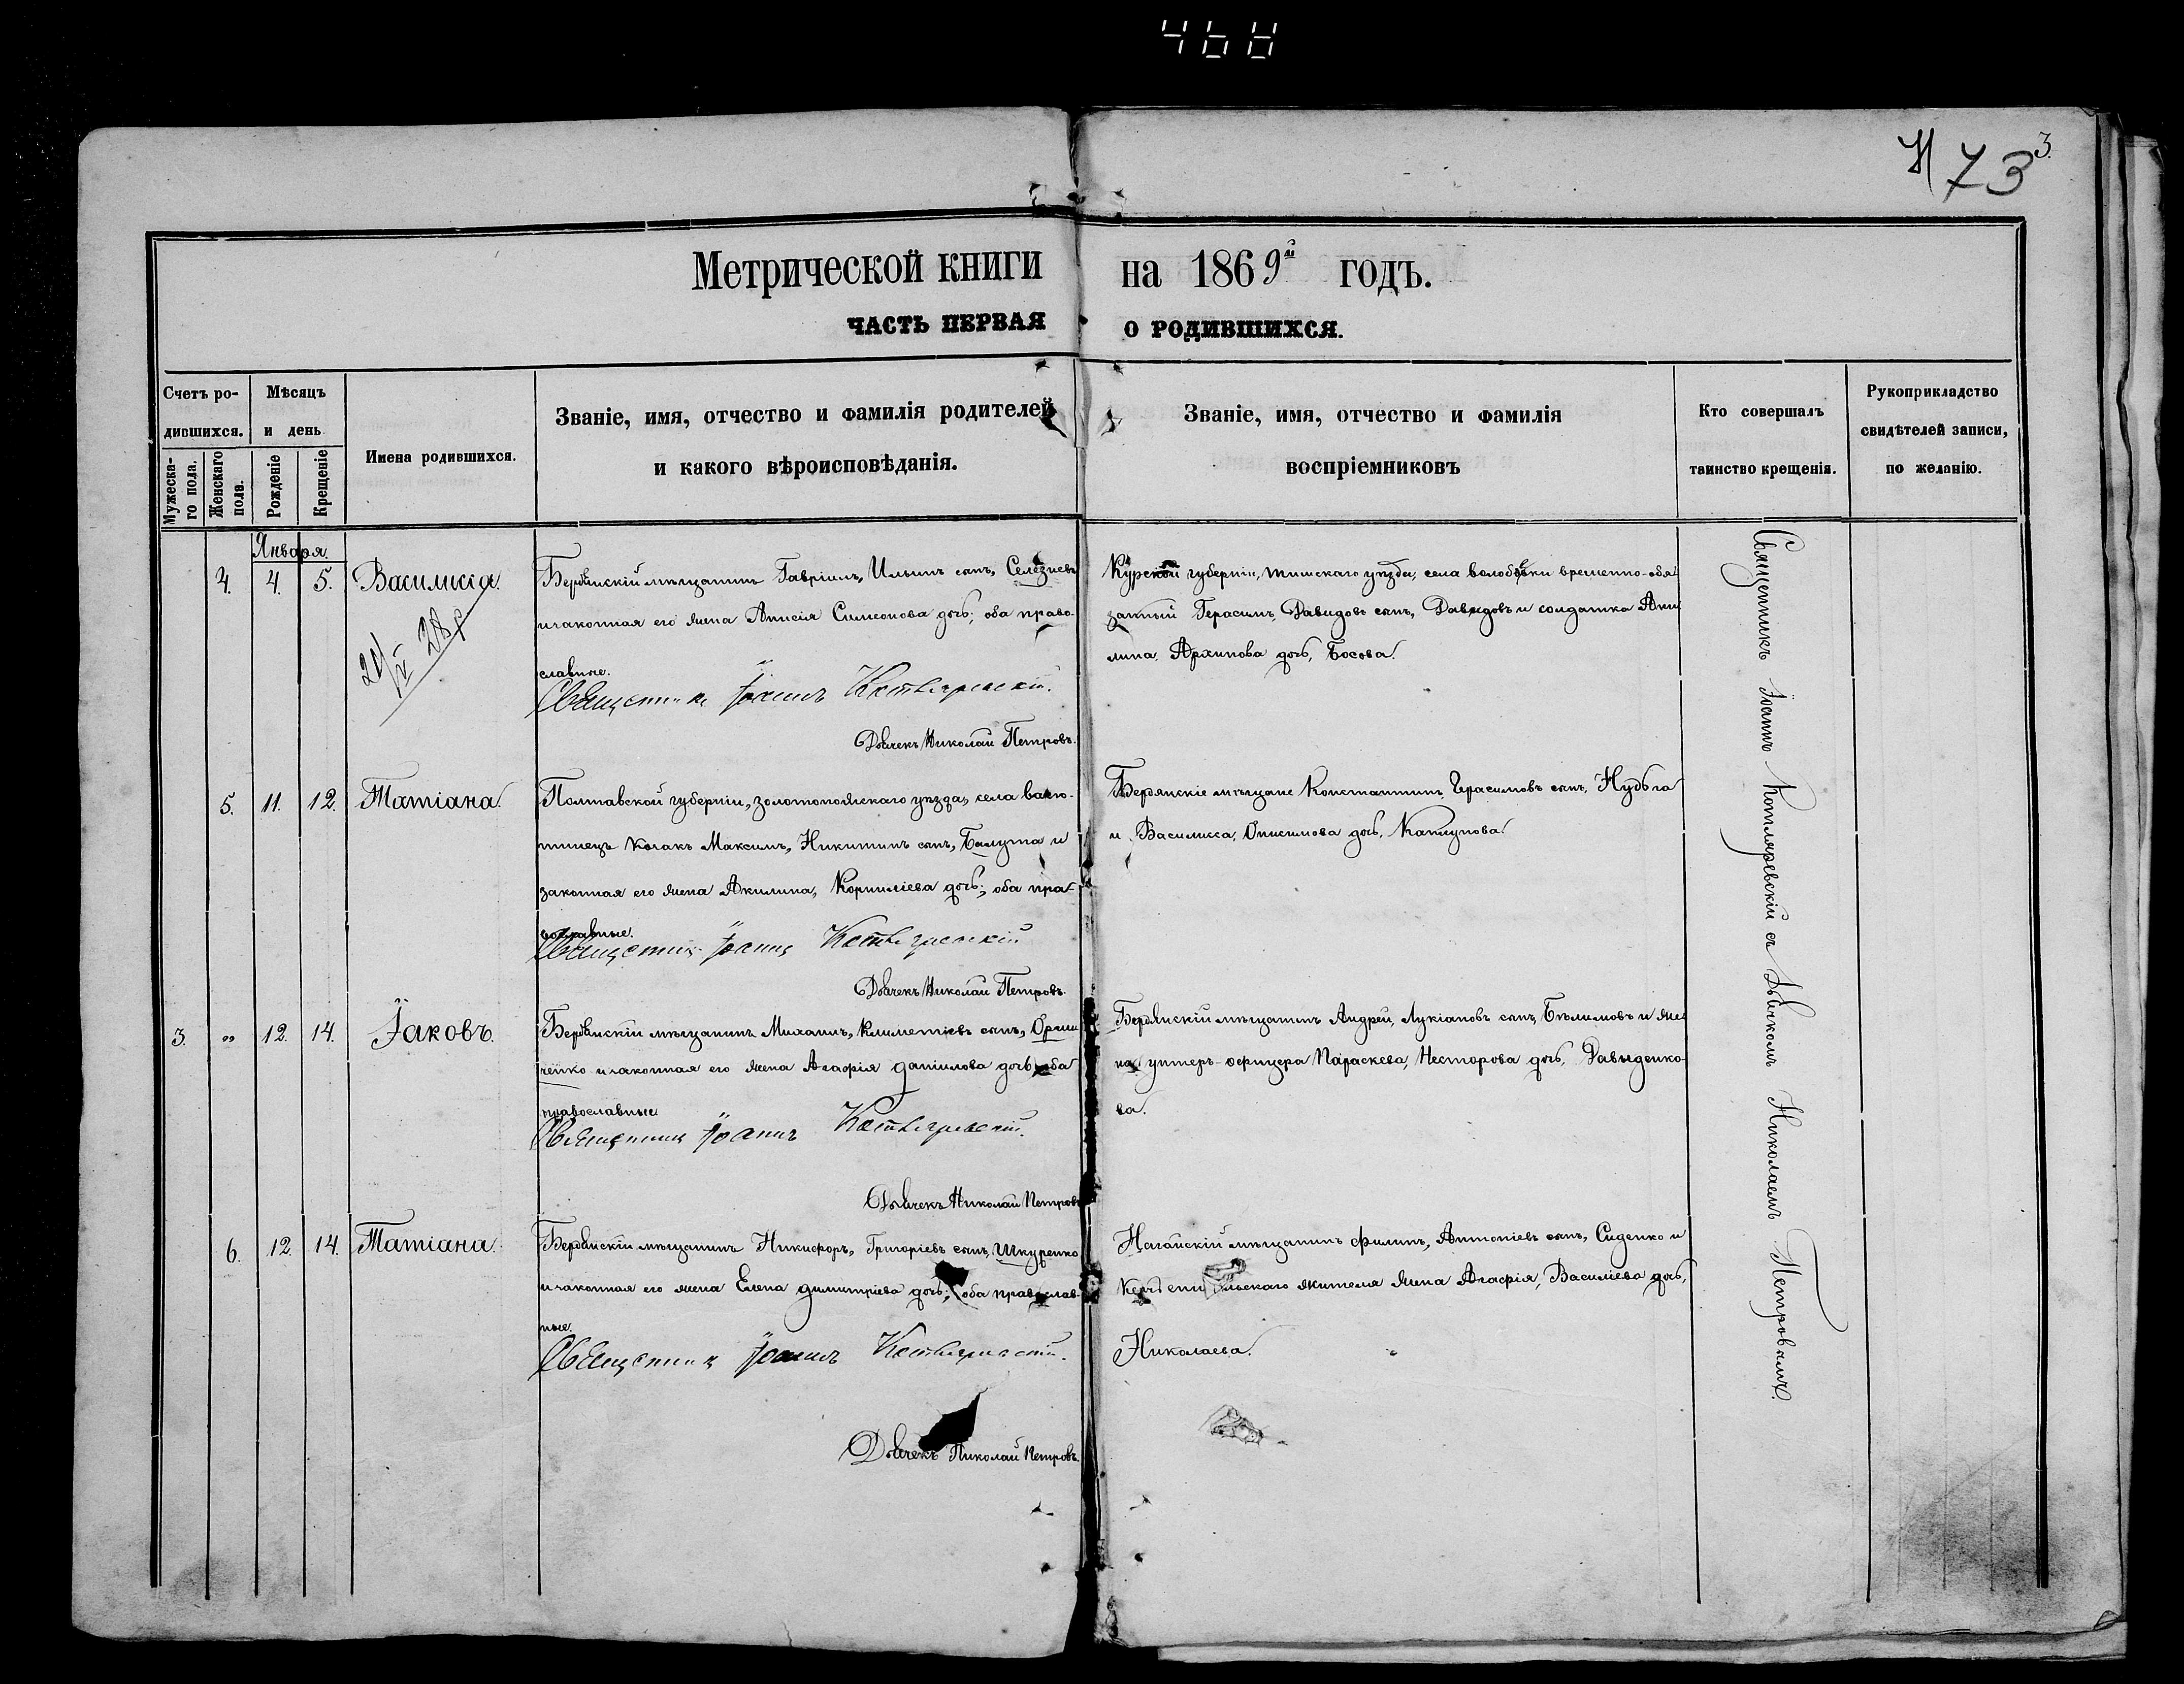 468
73
3.
Метрической книги на 1869й годъ.
ЧАСТЬ ПЕРВАЯ О РОДИВШИХСЯ.
Счетъ родившихся.
Мужескаго пола.
Женскаго пола.
Мѣсяцъ и день
Рожденіе
Крещеніе
Имена родившихся.
Званіе, имя, отчество и фамилія родителей
и какого вѣроисповѣданія.
Званіе, имя, отчество и фамилія
воспріемниковъ
Кто совершалъ
таинство крещенія.
Рукоприкладство
свидѣтелей записи,
по желанію.
Января.
4. 4. 5. Василисса.
Бердянскій мѣщанинъ Гавріилъ, Ильинъ сынъ, Селезневъ
и законная его жена Анисія Симеонова дочь; оба право-
славные.
Священникъ Іоаннъ Котляревскій.
Дьячекъ Николай Петровъ.
Курской губерніи, тимскаго уѣзда, села временно-обя-
занный Герасимъ, Давидовъ сынъ, Давыдовъ и солдатка Аки-
лина, Архипова дочь, Босова.
5. 11. 12. Татіана.
Полтавской губерніи, золотоношскаго уѣзда, села
козакъ Максимъ, Никитинъ сынъ, Балута и
законная его жена Акилина, Корниліева дочь; оба пра-
вославные.
Священникъ Іоаннъ Котляревскій
Дьячекъ Николай Петровъ.
Бердянскіе мѣщане Константинъ, Герасимовъ сынъ, Нудьга
и Василисса, Онисимова дочь,
3. " 12. 14. Іаковъ.
Бердянскій мѣщанинъ Михаилъ, Климентіевъ сынъ, Ориш-
ченко и законная его жена Агафія Даніилова дочь; оба
православные
Священникъ Іоаннъ Котляревскій.
Дьячекъ Николай Петровъ
Бердянскій мѣщанинъ Андрей, Лукіановъ сынъ, Бѣлимовъ и же-
на унтеръ-офицера Параскева, Несторова дочь, Давыденко-
ва.
6. 12. 14. Татіана.
Бердянскій мѣщанинъ Никифоръ, Григоріевъ сынъ, Шкуренко
и законная его жена Елена Димитріева дочь; оба православ-
ные.
Священникъ Іоаннъ Котляревскій.
Дьячекъ Николай Петровъ.
Ногайскій мѣщанинъ Филипъ, Антоніевъ сынъ, Сиденко и
жителя жена Агафія, Василіева дочь,
Николаева.
Священникъ Іоаннъ Котляревскій съ Дьячкомъ Николаемъ Петровымъ.